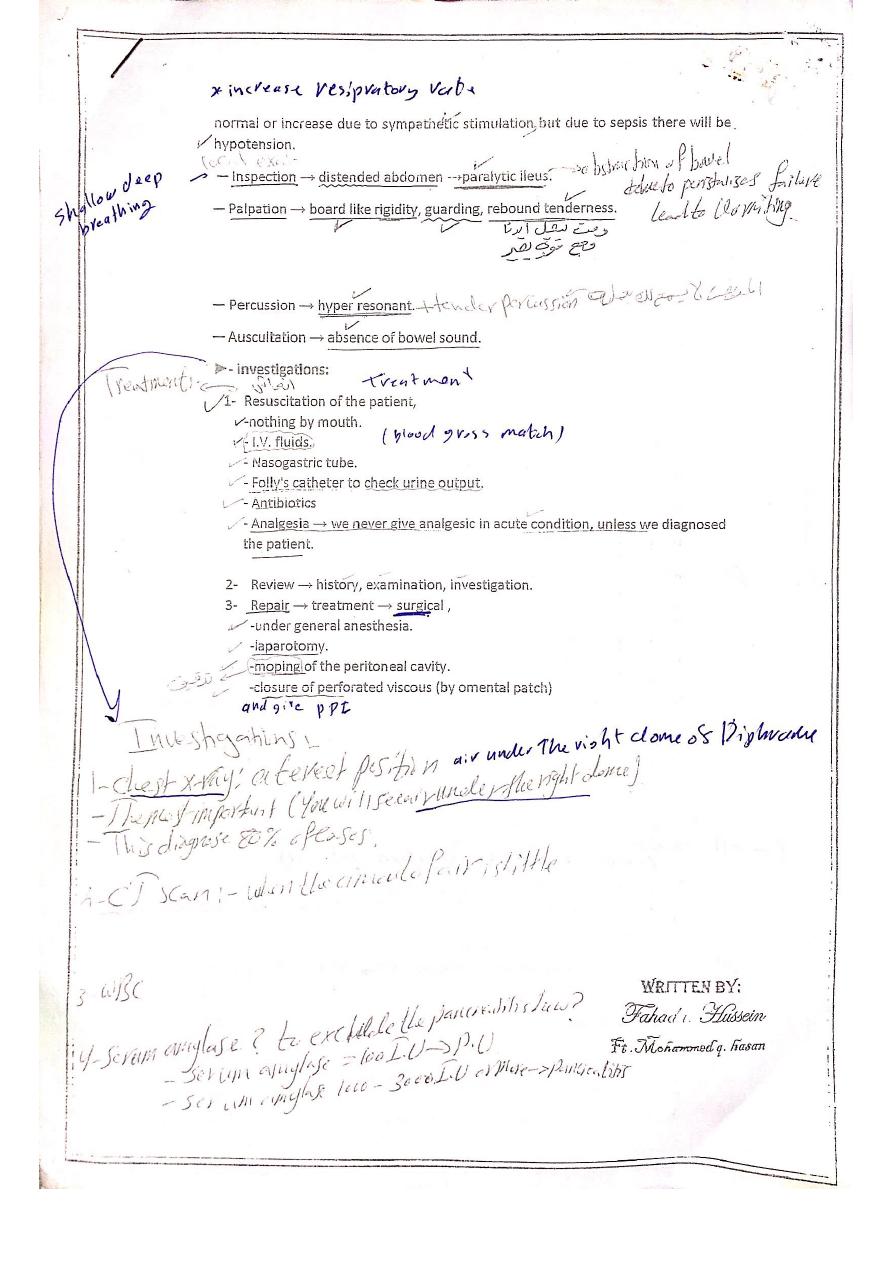 * increase resipratory rate
normal or increase due to sympathetic stimulation, but due to sepsis there will be
hypotension.
— Inspection → distended abdomen --→paralytic ileus. → obstruction of bowel
due to peristalises failure
lead to Vomiting.
shallow deep
breathing
— Palpation → board like rigidity, guarding, rebound tenderness.
— Percussion → hyper resonant. + tender percussion
— Auscultation → absence of bowel sound.
➤- investigations:
Treatment:
treatment
1- Resuscitation of the patient,
-nothing by mouth.
- I.V. fluids. (blood gross match)
- Nasogastric tube.
- Folly's catheter to check urine output.
- Antibiotics
- Analgesia → we never give analgesic in acute condition, unless we diagnosed
the patient.
2- Review → history, examination, investigation.
3- Repair → treatment → surgical ,
-under general anesthesia.
-laparotomy.
-moping of the peritoneal cavity.
-closure of perforated viscous (by omental patch)
and give PPI
Investigations:
1- chest x-ray: at erect position air under The right dome of Diphradme
- The most important (You will see air under the right dome)
- This diagnose 80% of cases.
2- CT scan :- when the amount of air is little
3- WBC
4- Serum amylase ? to exclude the pancreatitis
- serum amylase = 100 I.U → P.U
- serum amylase 1000 - 3000 I.U or More → pancreatitis
WRITTEN BY:
Fahad i. Hussein
Ft. Mohammed q. hasan